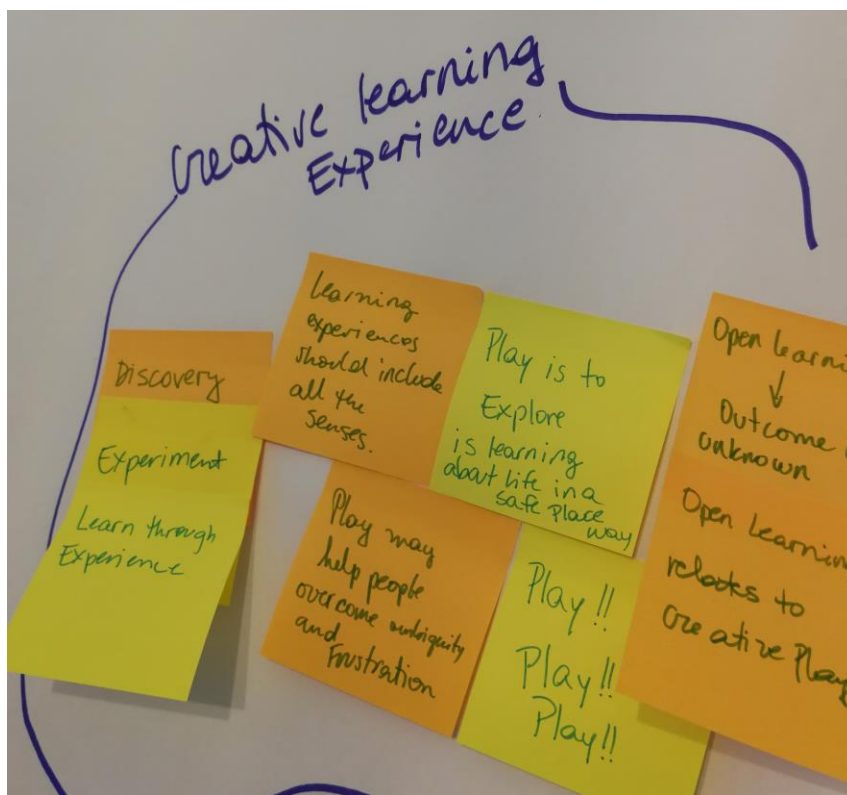 Creative learning
Experience
Discovery
Experiment
Learn through
Experience
Learning
experiences
should include
all the
senses.
Play is to
Explore
is learning
about life in a
safe place
way
Play may
help people
overcome ambiguity
and
Frustration
Play!!
Play!!
Play!!
Open learni
↓
Outcome
unknown
Open Learning
relates to
creative Play